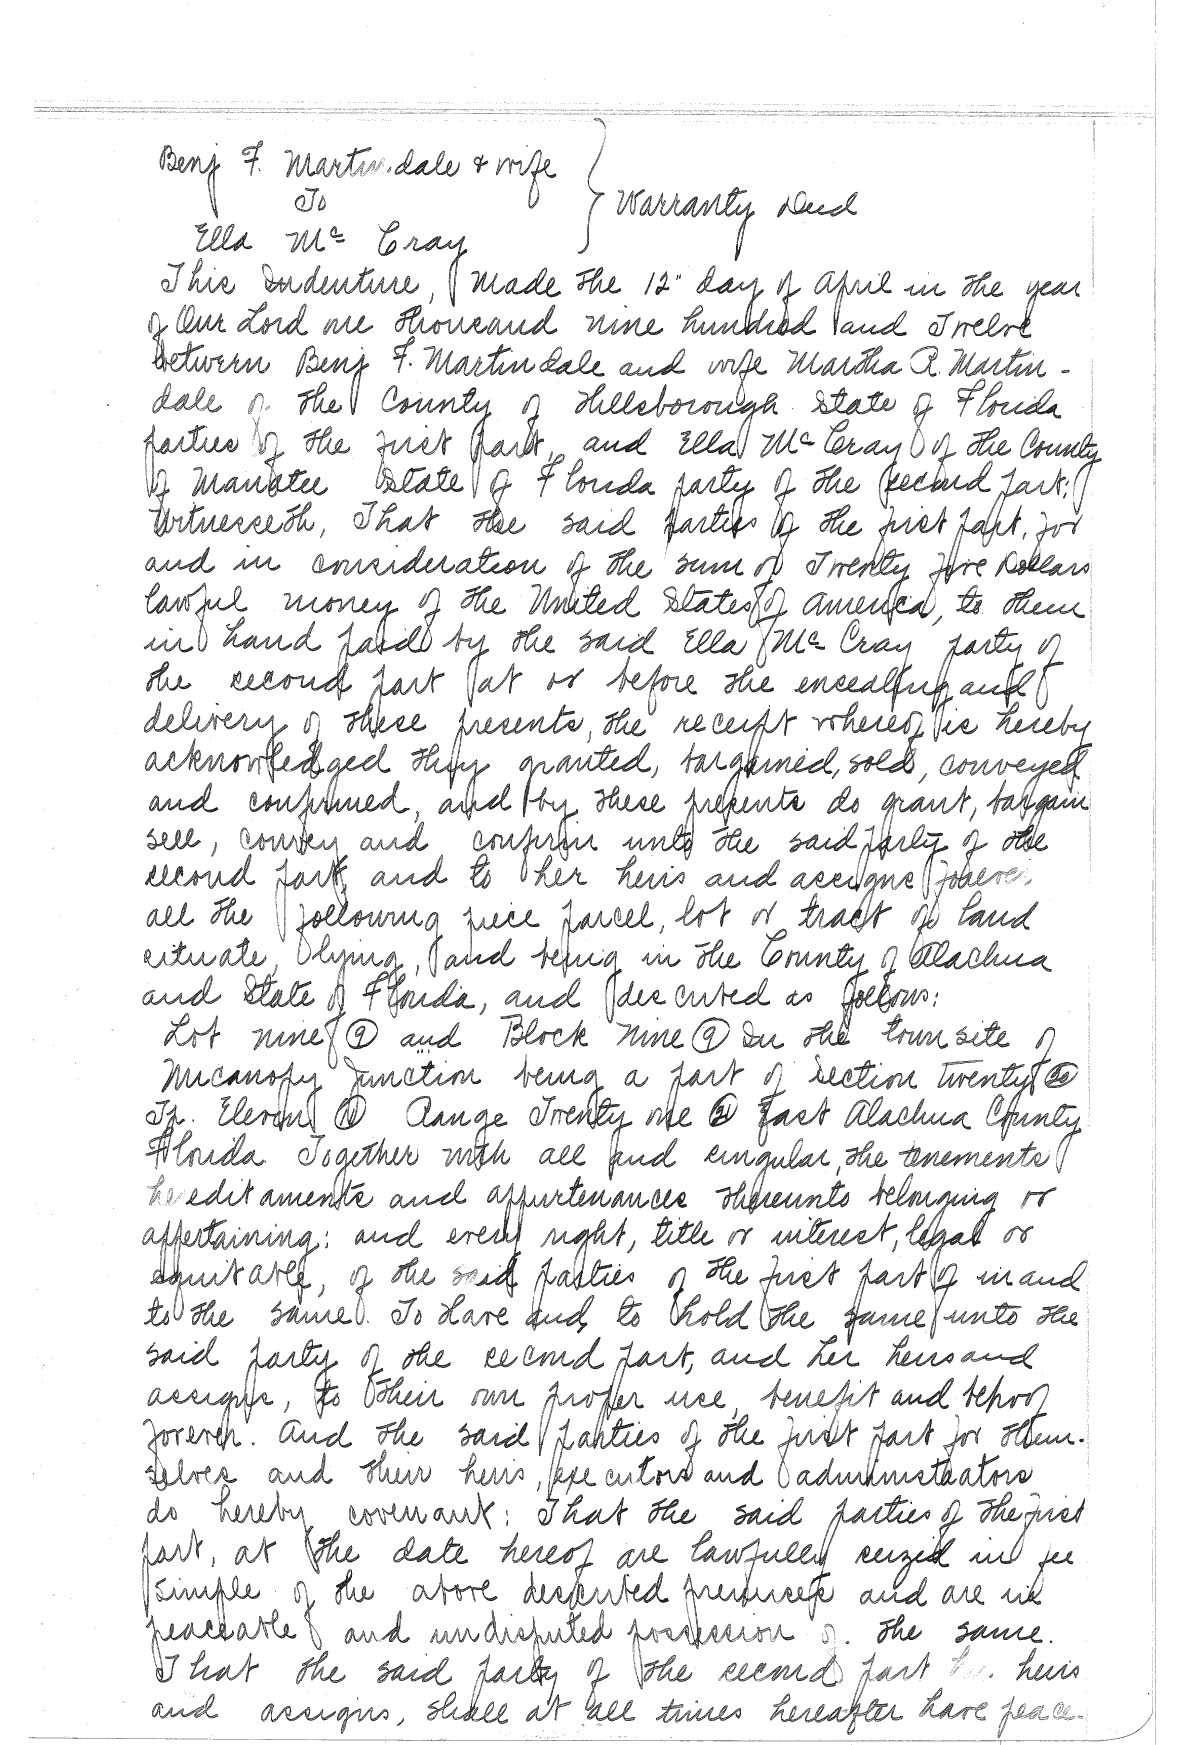 Benj F. Martindale & wife
To
Warranty Deed
Ella Mc Cray
This Indenture, Made the 12" day of April in the year
of Our Lord one thousand nine hundred and Twelve
between Benj F. Martindale and wife Martha R. Martin-
dale of the County of Hillsborough State of Florida
parties of the first part, and Ella Mc Cray of the County
of Manatee State of Florida party of the second part:
Witnesseth, That the said parties of the first part, for
and in consideration of the sum of Twenty five Dollars
lawful money of the United States of America, to them
in hand paid by the said Ella Mc Cray party of
the second part at or before the ensealing and
delivery of these presents, the receipt whereof is hereby
acknowledged they granted, bargained, sold, conveyed
and confirmed, and by these presents do grant, bargain
sell, convey and confirm unto the said party of the
second part, and to her heirs and assigns forever.
all the following piece parcel, lot or tract of land
situate, lying, and being in the County of Alachua
and State of Florida, and described as follows:
Lot nine (9) and Block Nine (9) In the townsite of
Micanopy Junction being a part of Section Twenty (20)
Tp. Eleven (11) Range Twenty one (21) East Alachua County
Florida Together with all and singular, the tenements
hereditaments and appurtenances thereunto belonging or
appertaining: and every right, title or interest, legal or
equitable, of the said parties of the first part of in and
to the same. To Have and to hold the same unto the
said party of the second part, and her heirs and
assigns, to their own proper use, benefit and behoof
forever. And the said parties of the first part for them-
selves and their heirs, executors and administrators
do hereby covenant: That the said parties of the first
part, at the date hereof are lawfully seized in fee
simple of the above described premises and are in
peaceable and undisputed possession of the same.
That the said party of the second part her heirs
and assigns, shall at all times hereafter have peace-